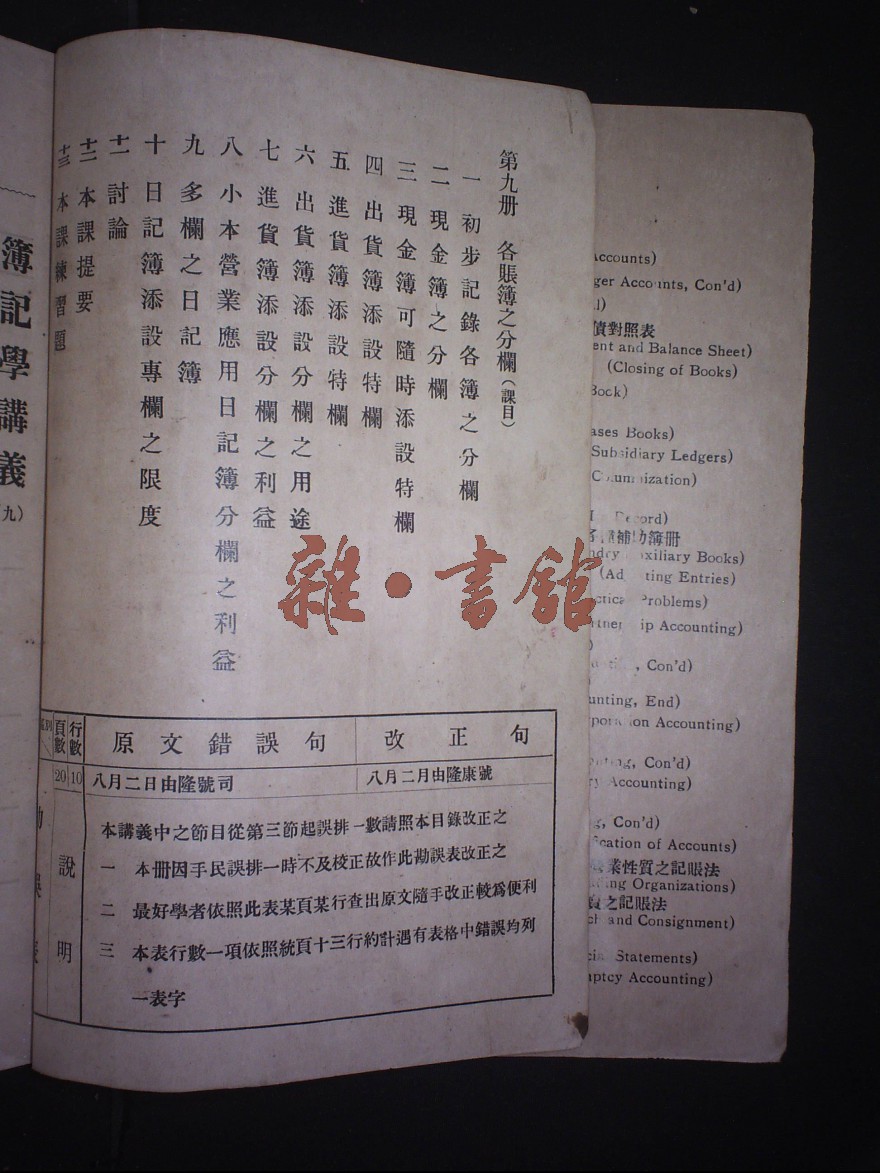 第九册 各賬簿之分欄(課目)
一 初步記錄各簿之分欄
二 現金簿之分欄
三 現金簿可隨時添設特欄
四 出貨簿添設特欄
五 進貨簿添設特欄
六 出貨簿添設分欄之用途
七 進貨簿添設分欄之利益
八 小本營業應用日記簿分欄之利益
九 多欄之日記簿
十 日記簿添設專欄之限度
十一 討論
十二 本課提要
十三 本課練習題
行數 頁數
原文錯誤句 改正句
10 20 八月二日由隆號司 八月二月由隆康號
說明
本講義中之節目從第三節起誤排一數請照本目錄改正之
一 本册因手民誤排一時不及校正故作此勘誤表改正之
二 最好學者依照此表某頁某行查出原文隨手改正較爲便利
三 本表行數一項依照統頁十三行約計遇有表格中錯誤均列
一表字
簿記學講義
九)
雜·書館
Accounts)
ger Accounts, Con'd)
債對照表
ent and Balance Sheet)
(Closing of Books)
Book)
ases Books)
Subsidiary Ledgers)
補助簿册
xiliary Books)
(Ad ting Entries)
Problems)
ip Accounting)
, Con'd)
unting, End)
on Accounting)
, Con'd)
Accounting)
, Con'd)
cation of Accounts)
業性質之記賬法
ing Organizations)
之記賬法
ch and Consignment)
Statements)
uptcy Accounting)